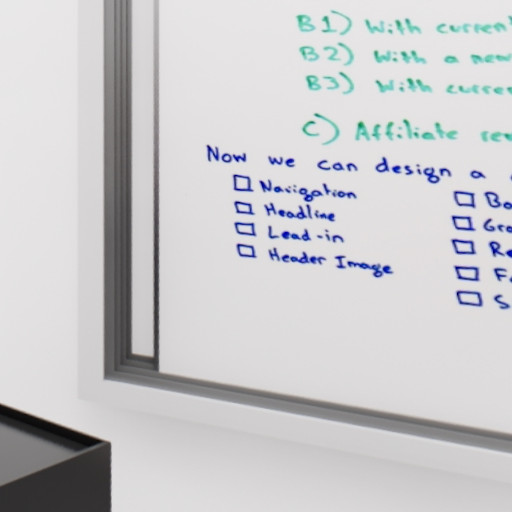 B1) With current
B2) With a new
B3) With curre
C) Affiliate
Now we can design a
Navigation
Headline
Lead-in
Header Image